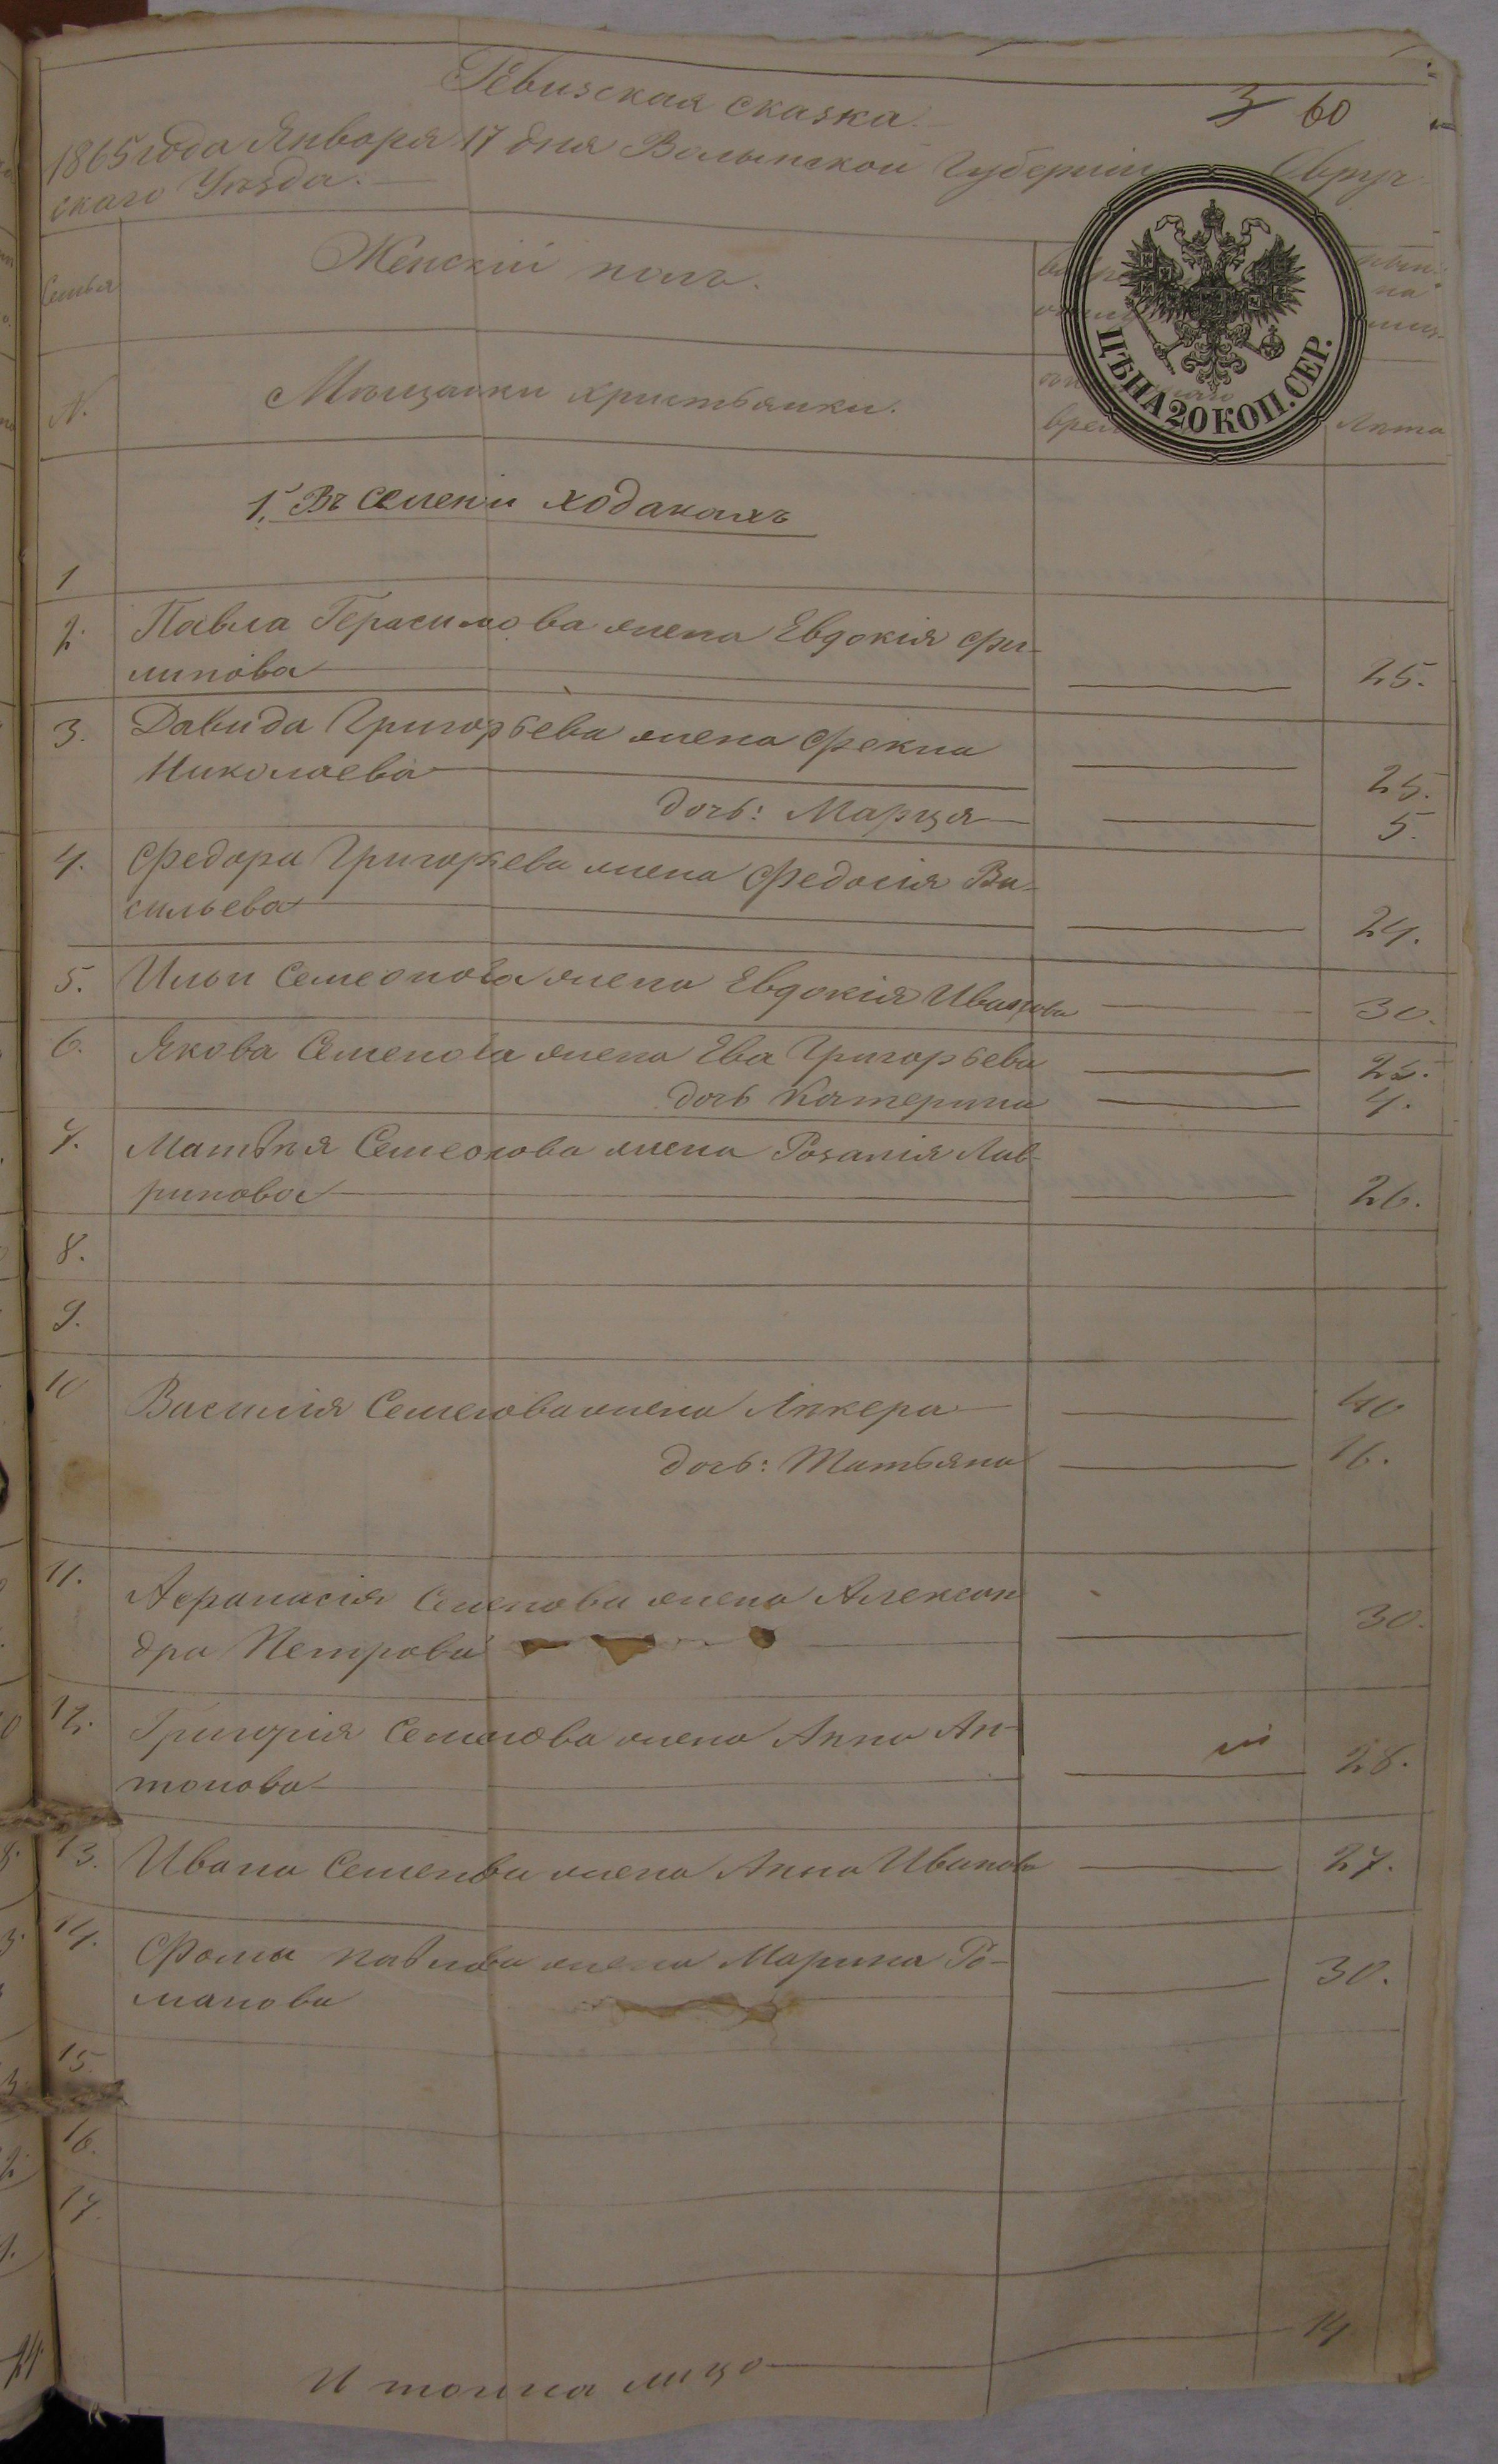 Ревизская сказка.
3 60
1865 года Января 17 дня Волынской Губерніи Овруч
скаго Уѣзда.
Семья
Женскій полъ.
ЦѢНА 20 КОП. СЕР.
N.
Мѣщанки христьянки.
Лѣта
1. Въ селени Ходакахъ
1
2. Павла Герасимова жена Евдокія Фи-
липова 25.
3. Давида Григорьева жена Фекла
Николаева 25.
дочь: Марця 5.
4. Федора Григорьева жена Федосія Ва-
сильева 24.
5. Ильи Семеонова жена Евдокія Иванова 30.
6. Якова Семенова жена Ева Григорьева 25.
дочь Катерина 4.
7. Матвѣя Семеонова жена Розалія Лав-
ринова 26.
8.
9.
10 Василія Семенова жена Ликера 40
дочь: Татьяна 16.
11. Афанасія Семенова жена Алексан
дра Петрова 30.
12. Григорія Семенова жена Анна Ан-
тонова 28.
13. Ивана Семенова жена Анна Иванова 27.
14. Фомы Павлова жена Марина Ро-
манова 30.
15.
16.
17.
Итого на лицо 14